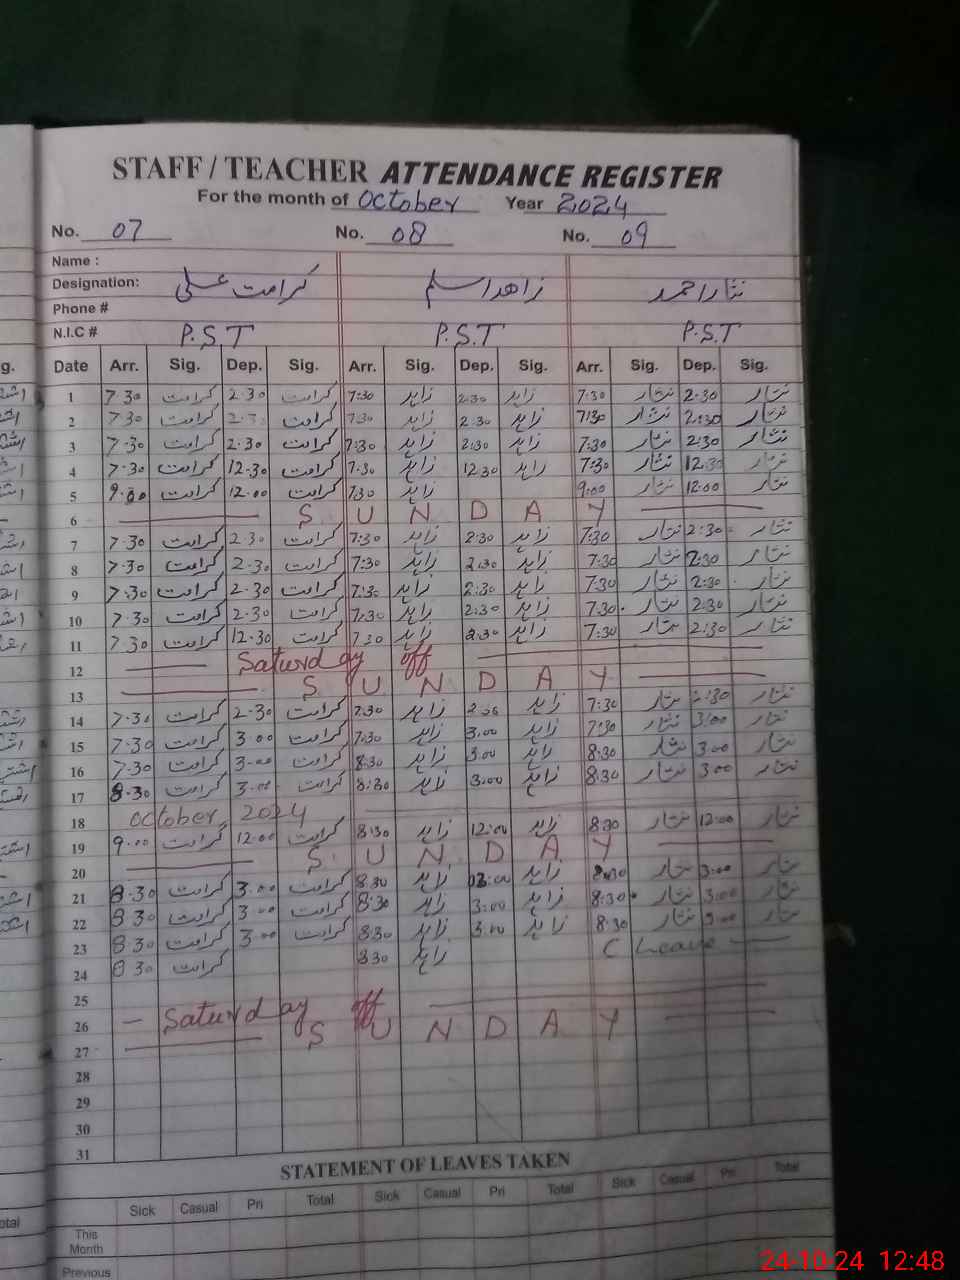 STAFF / TEACHER ATTENDANCE REGISTER
For the month of October Year 2024
No. 07 No. 08 No. 09
Name :
Designation: کرامت علی زاھد اسلم نثار احمد
Phone #
N.I.C # P.S.T P.S.T P.S.T
Date Arr. Sig. Dep. Sig. Arr. Sig. Dep. Sig. Arr. Sig. Dep. Sig.
1 7:30 کرامت 2.30 کرامت 7:30 زاہد 2:30 زاہد 7:30 نثار 2:30 نثار
2 7.30 کرامت 2.30 کرامت 7:30 زاہد 2.30 زاہد 7:30 نثار 2:30 نثار
3 7.30 کرامت 2.30 کرامت 7:30 زاہد 2:30 زاہد 7:30 نثار 2:30 نثار
4 7.30 کرامت 12.30 کرامت 7:30 زاہد 12:30 زاہد 7:30 نثار 12:30 نثار
5 9.00 کرامت 12.00 کرامت 7:30 زاہد 9:00 نثار 12:00 نثار
6 S U N D A Y
7 7.30 کرامت 2.30 کرامت 7:30 زاہد 2:30 زاہد 7:30 نثار 2:30 نثار
8 7.30 کرامت 2.30 کرامت 7:30 زاہد 2:30 زاہد 7:30 نثار 2:30 نثار
9 7.30 کرامت 2.30 کرامت 7:30 زاہد 2:30 زاہد 7:30 نثار 2:30 نثار
10 7.30 کرامت 2.30 کرامت 7:30 زاہد 2:30 زاہد 7:30 نثار 2:30 نثار
11 7.30 کرامت 12.30 کرامت 7:30 زاہد 2:30 زاہد 7:30 نثار 2:30 نثار
12 Saturday off
13 S U N D A Y
14 7.30 کرامت 2.30 کرامت 7:30 زاہد زاہد 7:30 نثار 2:30 نثار
15 7.30 کرامت 3.00 کرامت 7:30 زاہد 3:00 زاہد 7:30 نثار 3:00 نثار
16 7.30 کرامت 3.00 کرامت 8:30 زاہد 3:00 زاہد 8:30 نثار 3:00 نثار
17 8.30 کرامت 3.00 کرامت 8:30 زاہد 3:00 زاہد 8:30 نثار 3:00 نثار
18 October 2024
19 9.00 کرامت 12.00 کرامت 8:30 زاہد 12:00 زاہد 8:30 نثار 12:00 نثار
20 S U N D A Y
21 8.30 کرامت 3.00 کرامت 8:30 زاہد 03:00 زاہد 8:30 نثار 3:00 نثار
22 8.30 کرامت 3.00 کرامت 8:30 زاہد 3:00 زاہد 8:30 نثار 3:00 نثار
23 8.30 کرامت 3.00 کرامت 8:30 زاہد 3:00 زاہد 8:30 نثار 3:00 نثار
24 8.30 کرامت 8:30 زاہد C Leave
25
26 Saturday off
27 S U N D A Y
28
29
30
31
STATEMENT OF LEAVES TAKEN
Sick Casual Pri Total Sick Casual Pri Total Sick Casual Pri Total
This Month
Previous
24-10-24 12:48